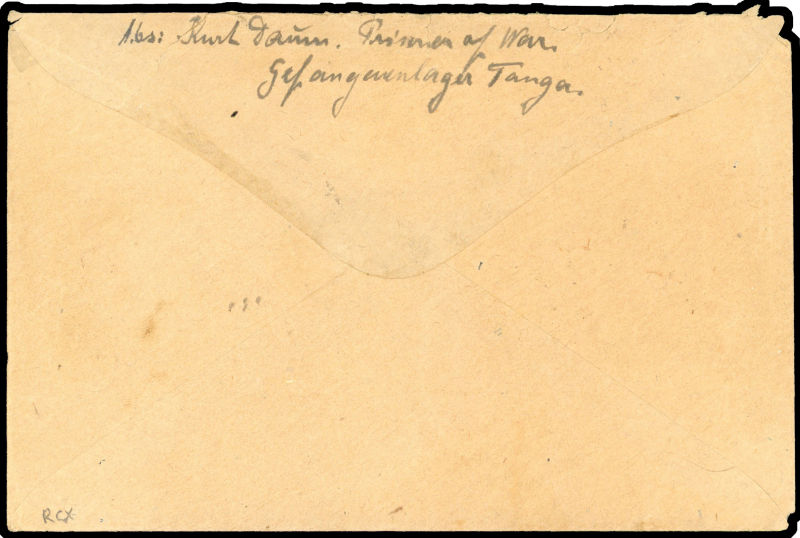 Abs: Kurt Daum. Prisoner of War.
Gefangenenlager Tanga.
RCX